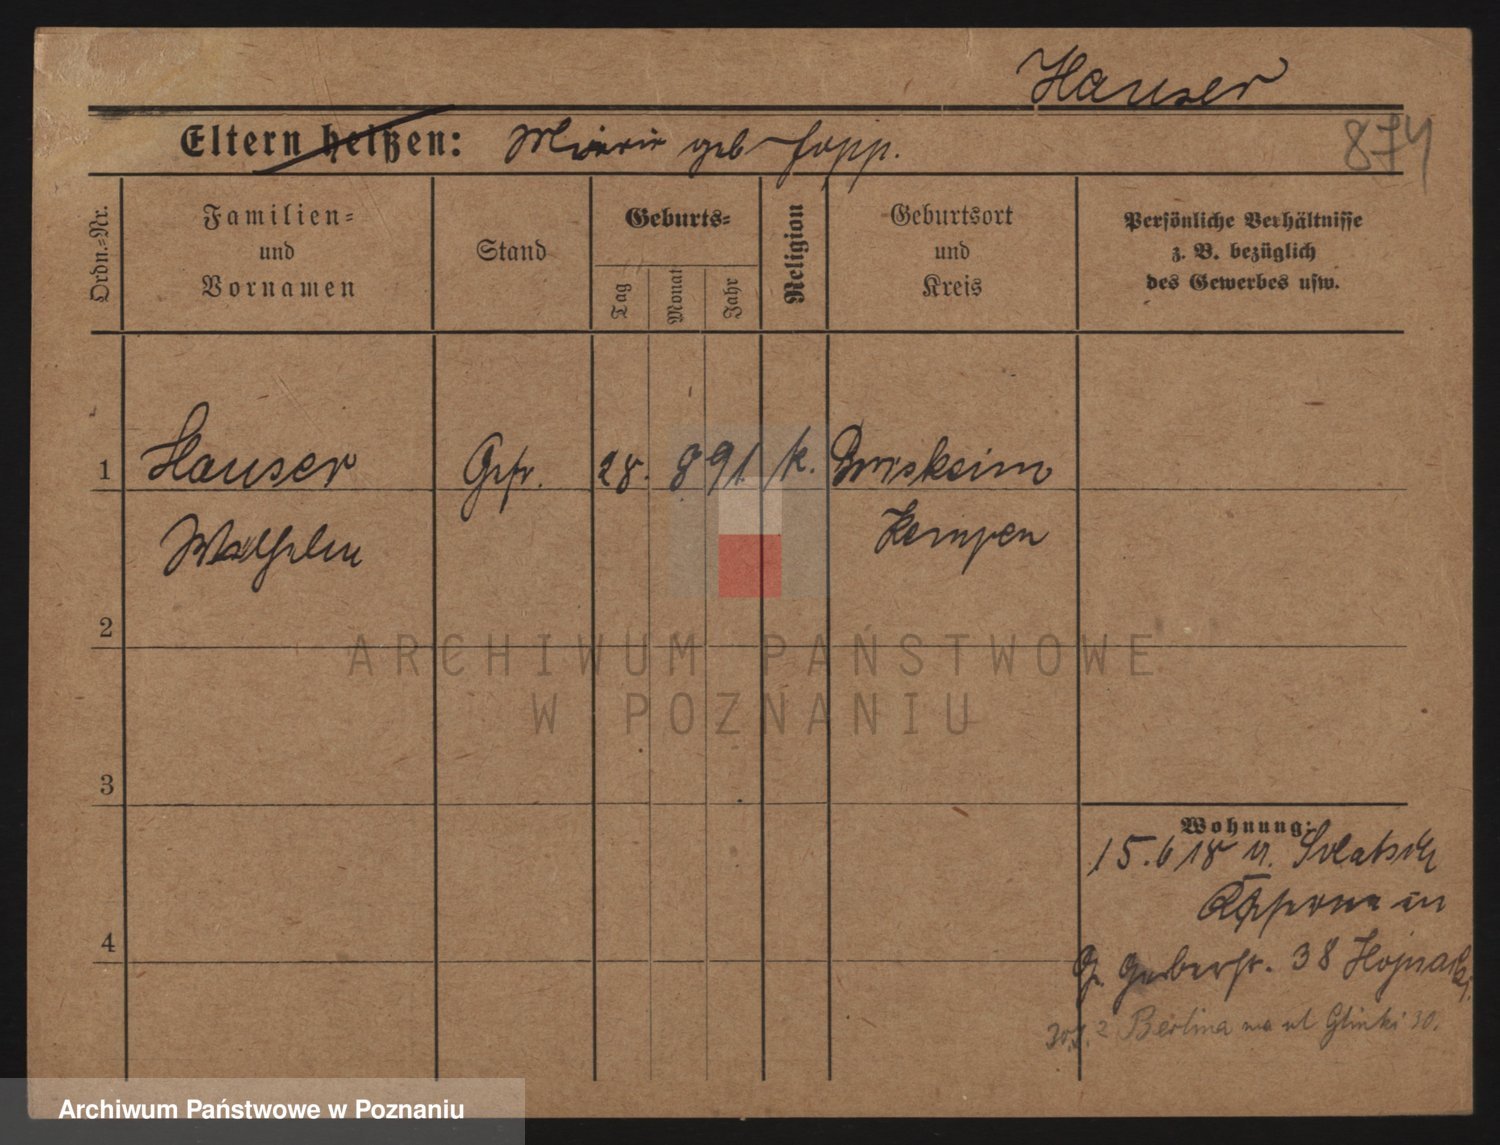 Hauser
Eltern heißen: geb
874
Ordn.=Nr.
Familien=
und
Vornamen
Stand
Geburts=
Tag
Monat
Jahr
Religion
Geburtsort
und
Kreis
Persönliche Verhältnisse
z. B. bezüglich
des Gewerbes usw.
1 Hauser Gefr. 28. 8 91. k.
Wilhelm Kempen
2
3
4
Wohnung:
15.6 18 v.
in
38
Berlina na ul Glinki 30.
ARCHIWUM PAŃSTWOWE
W POZNANIU
Archiwum Państwowe w Poznaniu